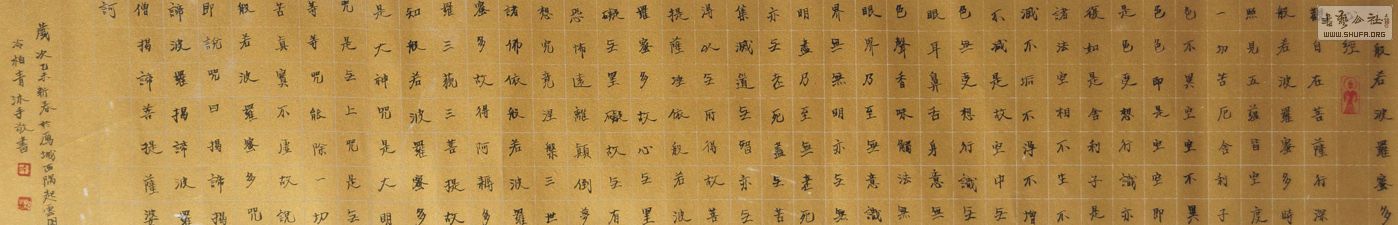 般若波羅蜜多
經
觀自在菩薩行深
般若波羅蜜多時
照見五蘊皆空度
一切苦厄舍利子
色不異空空不異
色色即是空空即
是色受想行識亦
復如是舍利子是
諸法空相不生不
滅不垢不淨不增
不減是故空中无
色無受想行識无
眼耳鼻舌身意無
色聲香味觸法無
眼界乃至無意識
界無無明亦無無
明盡乃至無老死
亦无老死盡无苦
集滅道无智亦无
得以无所得故菩
提薩埵依般若波
羅蜜多故心无罣
礙无罣礙故无有
恐怖遠離顛倒夢
想究竟涅槃三世
諸佛依般若波羅
蜜多故得阿耨多
羅三藐三菩提故
知般若波羅蜜多
是大神咒是大明
咒是无上咒是无
等等咒能除一切
苦真實不虛故說
般若波羅蜜多咒
即說咒曰揭諦揭
諦波羅揭諦波羅
僧揭諦菩提薩婆
訶
歲次乙未新春於城西隅起雲閣
冷柏青沐手敬書
書藝公社
WWW.SHUFA.COM